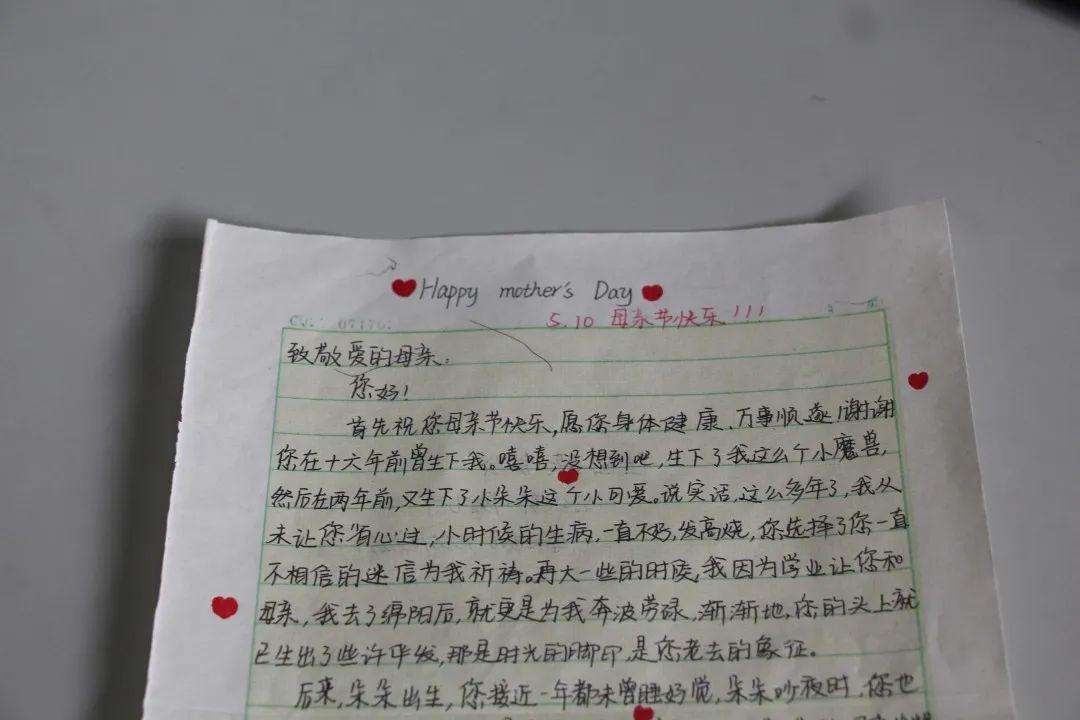 Happy mother's Day
5.10 母亲节快乐!!!
致敬爱的母亲:
您好!
首先祝您母亲节快乐,愿您身体健康、万事顺遂!谢谢
您在十六年前曾生下我。嘻嘻,没想到吧,生下了我这么个小魔兽,
然后在两年前,又生下了小朵朵这个小可爱。说实话,这么多年了,我从
未让您省心过,小时候的生病,一直不好,发高烧,您选择了您一直
不相信的迷信为我祈祷。再大一些的时候,我因为学业让您和
母亲,我去了绵阳后,就更是为我奔波劳碌,渐渐地,您的头上就
已生出了些许华发,那是时光的脚印,是您老去的象征。
后来,朵朵出生,您接近一年都未曾睡好觉,朵朵吵夜时,您也